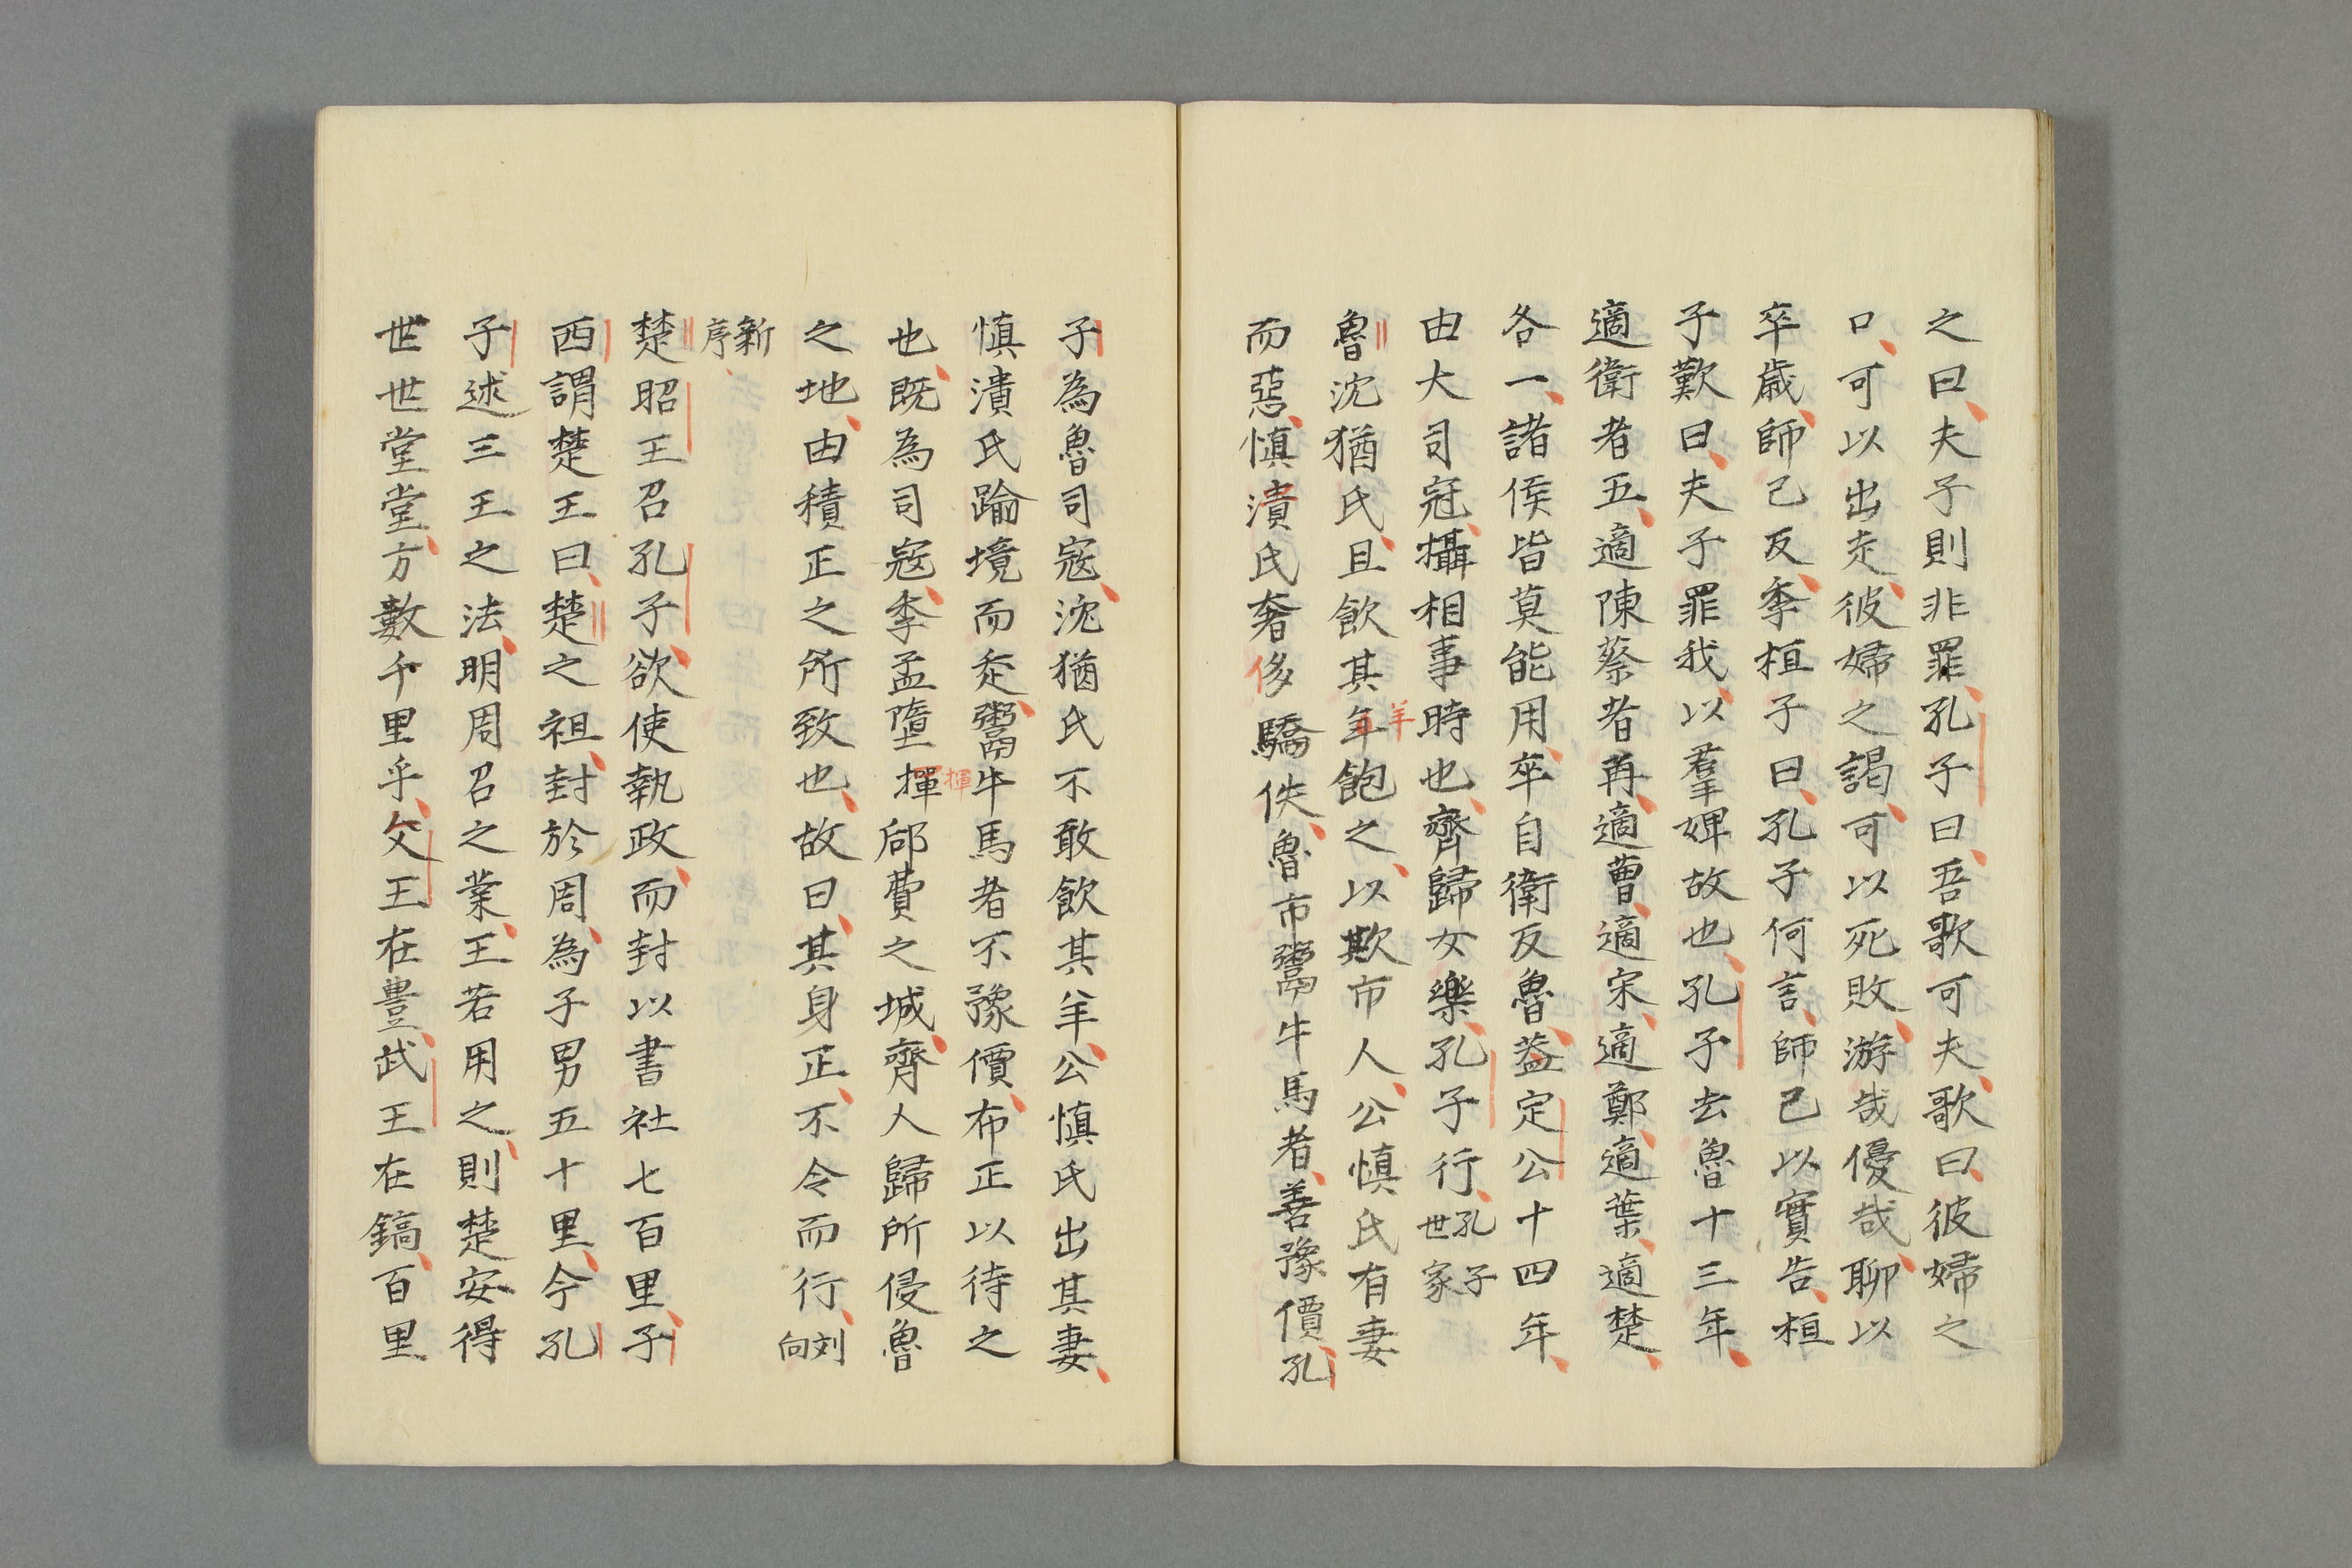 之曰夫子則非罪孔子曰吾歌可夫歌曰彼婦之
口可以出走彼婦之謁可以死敗游哉優哉聊以
卒歳師己反季桓子曰孔子何言師己以實告桓
子歎曰夫子罪我以羣婢故也孔子去魯十三年
適衛者五適陳蔡者再適曹適宋適鄭適葉適楚
各一諸侯皆莫能用卒自衛反魯葢定公十四年
由大司冦攝相事時也齊歸女樂孔子行孔子世家
魯沈猶氏旦飲其年飽之以欺市人公慎氏有妻
羊
而惡慎潰氏奢侈驕佚魯市鬻牛馬者善豫價孔
子為魯司寇沈猶氏不敢飲其羊公慎氏出其妻
慎潰氏踰境而走鬻牛馬者不豫價布正以待之
也既為司寇季孟墮揮郈費之城齊人歸所侵魯
揮
之地由積正之所致也故曰其身正不令而行刘向
新序
楚昭王召孔子欲使執政而封以書社七百里子
西謂楚王曰楚之祖封於周為子男五十里今孔
子述三王之法明周召之業王若用之則楚安得
世世堂堂方數千里乎文王在豊武王在鎬百里